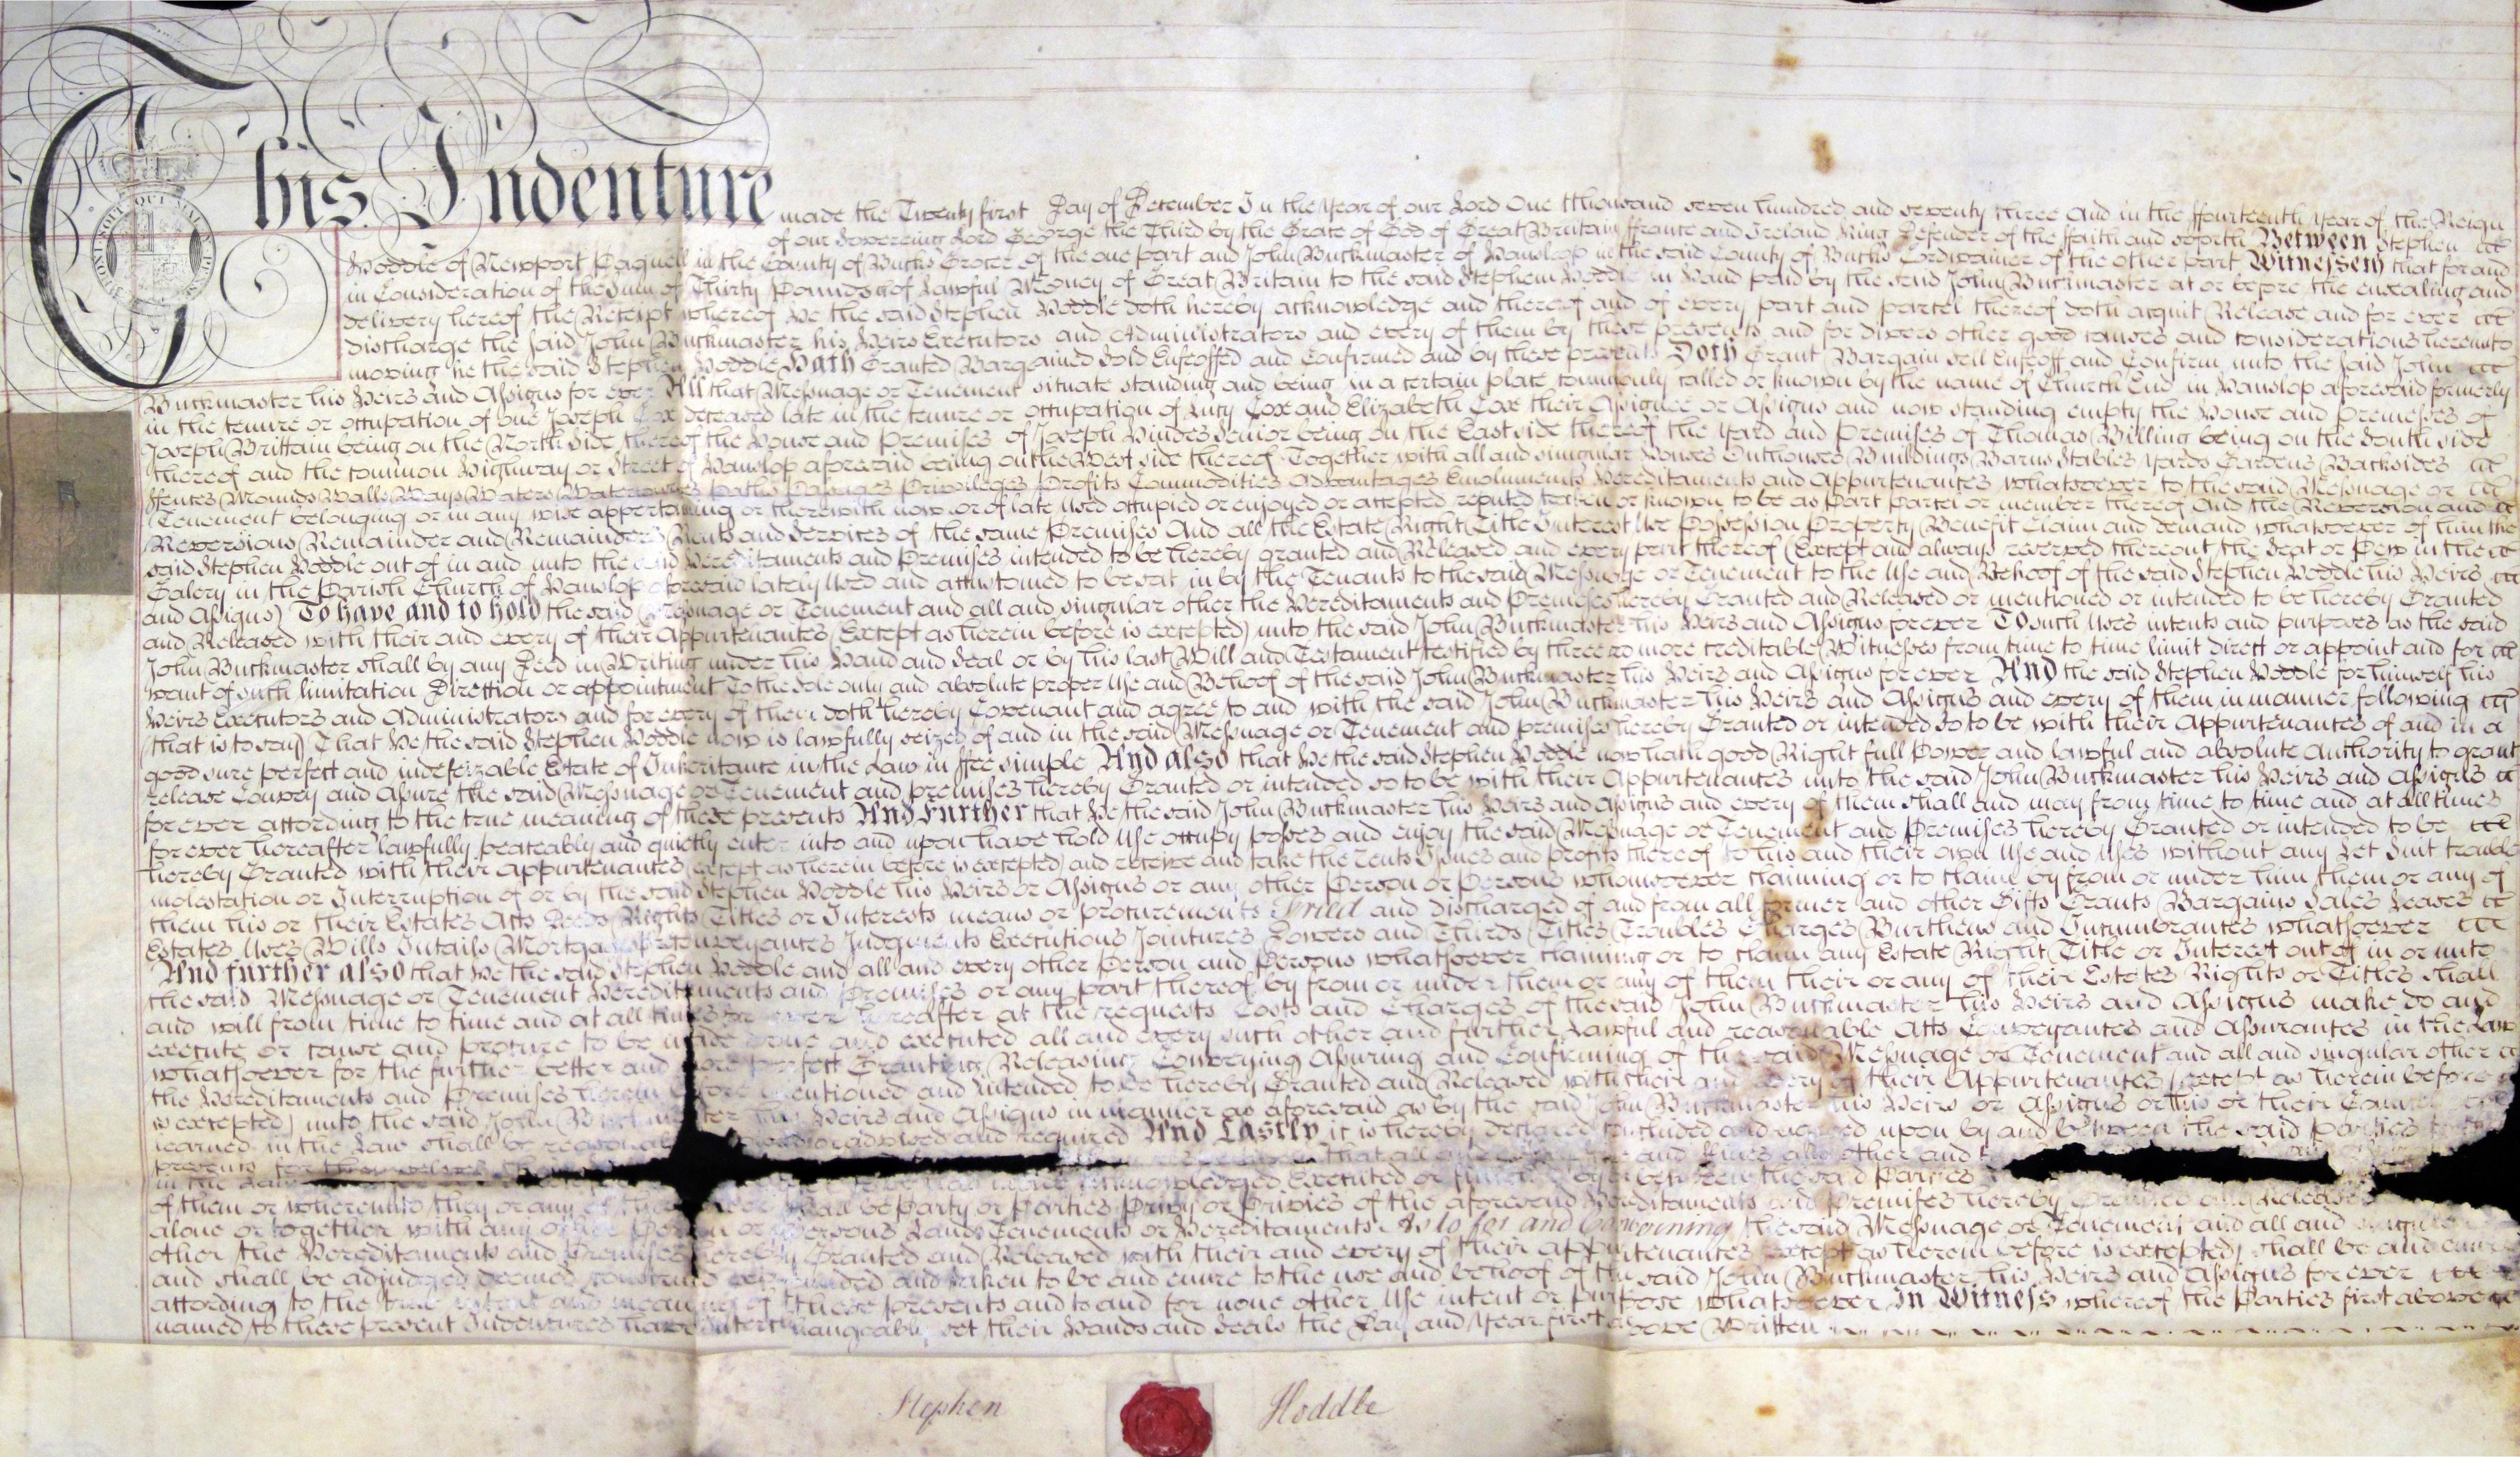 This Indenture made the Twenty first Day of December In the Year of our Lord One thousand seven hundred and seventy three And in the ffourteenth Year of the Reign
of our Sovereing Lord George the Third by the Grace of God of Great Britain ffrance and Ireland King Defender of the ffaith and soforth Between Stephen
Hoddle of Newport Pagnell in the County of Bucks Grocer of the one part and John Buckmaster of Hanslop in the said County of Bucks Cordwainer of the other part Witnesseth that for and
in Consideration of the Sum of Thirty Pounds of Lawful Money of Great Britain to the said Stephen Hoddle in Hand paid by the said John Buckmaster at or before the ensealing and
delivery hereof the Receipt whereof He the said Stephen Hoddle doth hereby acknowledge and thereof and of every part and parcel thereof doth acquit Release and for ever
discharge the said John Buckmaster his Heirs Executors and Administrators and every of them by these presents and for divers other good causes and considerations hereunto
moving he the said Stephen Hoddle Hath Granted Bargained Sold Enfeoffed and Confirmed and by these presents Doth Grant Bargain sell Enfeoff and Confirm unto the said John
Buckmaster his Heirs and Assigns for ever All that Messuage or Tenement situate standing and being in a certain place commonly called or known by the name of Church End in Hanslop aforesaid formerly
in the tenure or occupation of one Joseph Cox deceased late in the tenure or occupation of Lucy Cox and Elizabeth Cox their Assignee or Assigns and now standing empty the House and Premisses of
Joseph Brittain being on the North side thereof the House and Premises of Joseph Hindes Senior being on the East side thereof the Yard and Premises of Thomas Billing being on the South side
thereof and the common Highway or Street of Hanslop aforesaid being on the West side thereof Together with all and singular Houses Outhouses Buildings Barns Stables Yards Gardens Backsides
ffences Mounds Walls Ways Waters Watercourses Paths Passages Privileges Profits Commodities Advantages Emoluments Hereditaments and Appurtenances whatsoever to the said Messuage or
Tenement belonging or in any wise appertaining or therewith now or of late used occupied or enjoyed or accepted reputed taken or known to be as Part Parcel or member thereof And the Reversion and
Reversions Remainder and Remainders Rents and Services of the same Premises And all the Estate Right Title Interest Use Possession Property Benefit Claim and demand whatsoever of him the
said Stephen Hoddle out of in and unto the said Hereditaments and Premises intended to be hereby granted and Released and every part thereof (Except and always reserved thereout the Seat or Pew in the
Galery in the Parish Church of Hanslop aforesaid lately Used and accustomed to be sat in by the Tenants to the said Messuage or Tenement to the Use and Behoof of the said Stephen Hoddle his Heirs
and Assigns) To have and to hold the said Messuage or Tenement and all and singular other the Hereditaments and Premises hereby Granted and Released or mentioned or intended to be hereby Granted
and Released with their and every of their Appurtenances (Except as herein before is excepted) unto the said John Buckmaster his Heirs and Assigns forever To such Uses intents and purposes as the said
John Buckmaster shall by any Deed in Writing under his Hand and Seal or by his last Will and Testament testified by three or more creditable Witnesses from time to time limit direct or appoint and for
want of such limitation Direction or appointment To the sole only and absolute proper Use and Behoof of the said John Buckmaster his Heirs and Assigns for ever And the said Stephen Hoddle for himself his
Heirs Executors and Administrators and for every of them doth hereby Covenant and agree to and with the said John Buckmaster his Heirs and Assigns and every of them in manner following
(that is to say) That He the said Stephen Hoddle now is lawfully seized of and in the said Messuage or Tenement and premises hereby Granted or intended so to be with their Appurtenances of and in a
good sure perfect and indefeizable Estate of Inheritance in the Law in ffee simple And also that He the said Stephen Hoddle now hath good Right full Power and lawful and absolute Authority to grant
release Convey and Assure the said Messuage or Tenement and premises hereby Granted or intended so to be with their Appurtenances unto the said John Buckmaster his Heirs and Assigns
for ever according to the true meaning of these presents And further that He the said John Buckmaster his Heirs and Assigns and every of them shall and may from time to time and at all times
for ever hereafter lawfully peaceably and quietly enter into and upon have hold Use occupy posses and enjoy the said Messuage or Tenement and Premises hereby Granted or intended to be
hereby Granted with their Appurtenances (except as herein before is excepted) and receive and take the rents Issues and profits thereof to his and their own Use and Uses without any Let Suit trouble
molestation or Interruption of or by the said Stephen Hoddle his Heirs or Assigns or any other Person or Persons whomsoever claiming or to claim by from or under him them or any of
them his or their Estates Acts Deeds Rights Titles or Interests means or procurements ffreed and discharged of and from all former and other Gifts Grants Bargains Sales Leases
Estates Uses Wills Intails Mortgages Judgments Executions Jointures Dowers and Thirds Titles Troubles Charges Burthens and Incumbrances whatsoever
And further also that He the said Stephen Hoddle and all and every other Person and Persons whatsoever claiming or to claim any Estate Right Title or Interest out of in or unto
the said Messuage or Tenement Hereditaments and Premises or any part thereof by from or under them or any of them their or any of their Estates Rights or Titles shall
and will from time to time and at all times for ever hereafter at the requests Costs and Charges of the said John Buckmaster his Heirs and Assigns make do and
execute or cause and procure to be made done and executed all and every such other and further Lawful and reasonable Acts Conveyances and Assurances in the Law
whatsoever for the further better and more perfect Granting Releasing Conveying Assuring and Confirming of the said Messuage or Tenement and all and singular other
the Hereditaments and Premises herein before mentioned and intended to be hereby Granted and Released with their and every of their Appurtenances (except as herein before
is excepted) unto the said John Buckmaster his Heirs and Assigns in manner as aforesaid as by the said John Buckmaster his Heirs or Assigns or his or their
learned in the Law shall be advised and required And Lastly it is hereby declared concluded and agreed upon by and between the said Parties
presents for themselves that all and Fines and other and
in the acknowledged Executed or between the said Parties
of them or whereunto they or any of them shall be Party or Parties Privy or Privies of the aforesaid Hereditaments and Premises hereby Granted and Released
alone or together with any other Person or Persons Lands Tenements or Hereditaments As to for and Concerning the said Messuage or Tenement and all and singular
other the Hereditaments and Premises hereby Granted and Released with their and every of their appurtenances (except as herein before is excepted) shall be and enure
and shall be adjudged deemed and taken to be and enure to the use and behoof of the said John Buckmaster his Heirs and Assigns for ever
according to the true intent and meaning of these presents and to and for none other Use intent or purpose whatsoever In Witness whereof the Parties first above
named to these present Indentures have interchangeably set their Hands and Seals the Day and Year first above Written
Stephen Hoddle